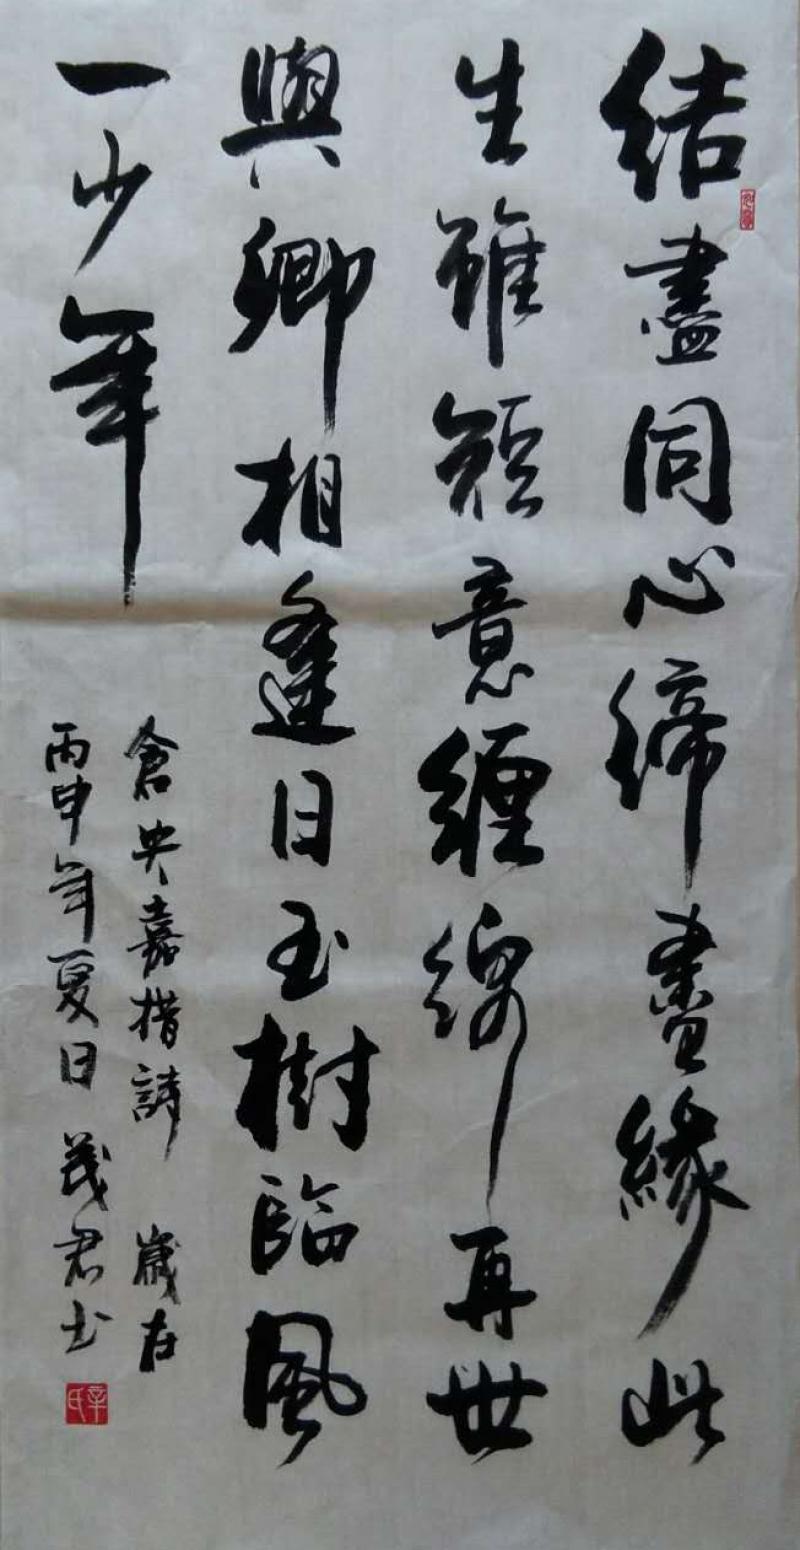 結盡同心締盡緣此
生雖短意纏綿再世
與卿相逢日玉樹臨風
一少年
倉央嘉措詩 歲在
丙申年夏日 茂君书
辛氏